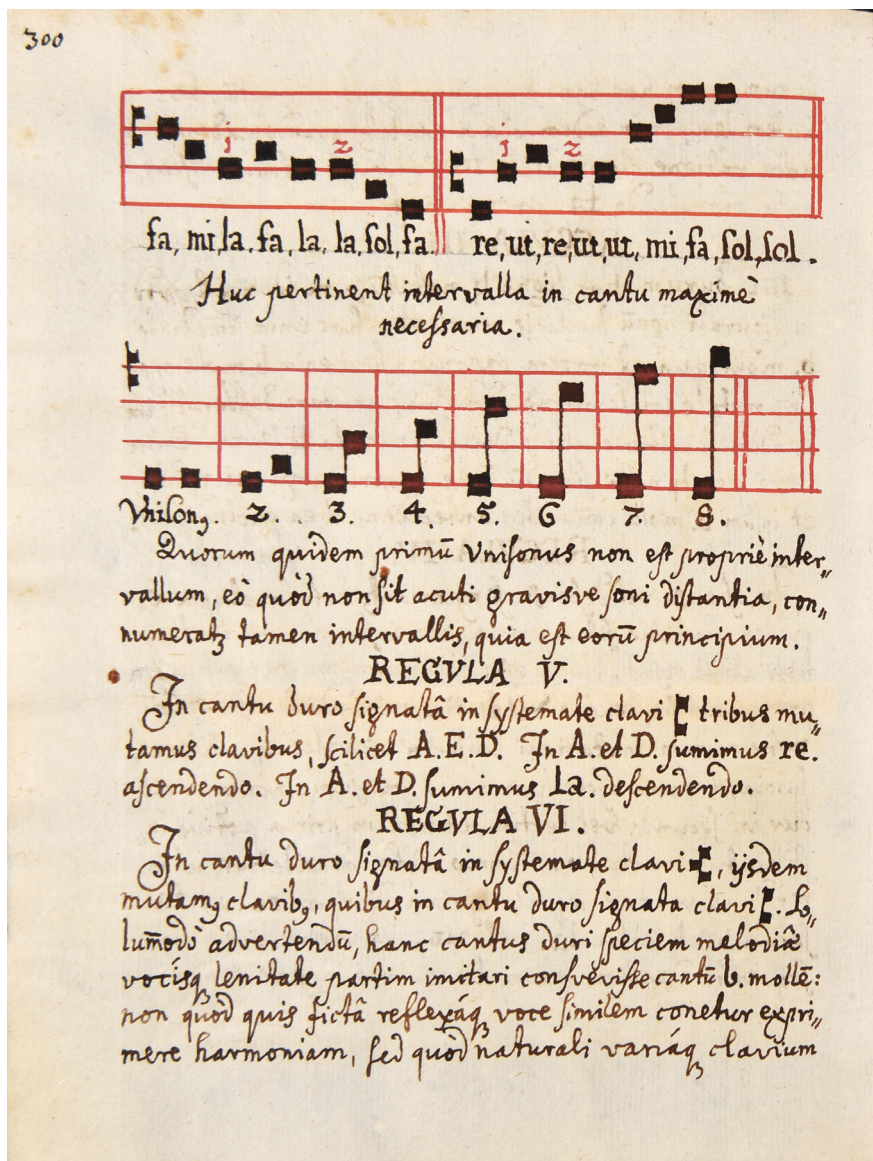 300
1 2 1 2
fa, mi, la, fa, la, la, sol, fa. re, ut, re, ut, ut, mi, fa, sol, sol.
Huc pertinent intervalla in cantu maximè
necessaria.
Unisonꝯ. 2. 3. 4. 5. 6 7. 8.
Quorum quidem primū Unisonus non est propriè inter„
vallum, eò quòd non sit acuti gravisve soni distantia, con„
numeratꝫ tamen intervallis, quia est eorū principium.
REGVLA V.
In cantu duro signatâ in systemate clavi tribus mu„
tamus clavibus, scilicet A. E. D. In A. et D. sumimus re.
ascendendo. In A. et D. sumimus La. descendendo.
REGVLA VI.
In cantu duro signatâ in systemate clavi, ijsdem
mutamꝯ clavibꝯ, quibus in cantu duro signata clavi. So„
lum̄odò advertendū, hanc cantus duri speciem melodiâ
vocisqꝫ lenitate partim imitari consvevisse cantū b. mollē:
non quòd quis fictâ reflexáqꝫ voce similem conetur expri„
mere harmoniam, sed quòd naturali variáqꝫ clavium